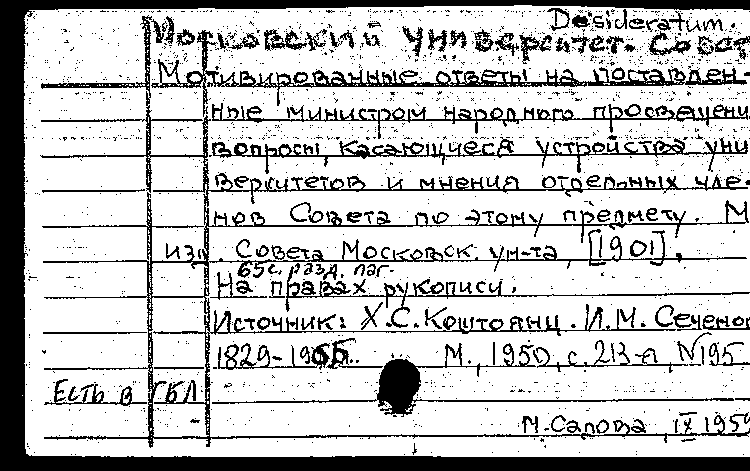 Desideratum.
Московский университет. Совет
Мотивированные ответы на поставлен-
ные министром народного просвещени
вопросы, касающиеся устройства уни
верситетов и мнения отдельных чле-
нов Совета по этому предмету. М
изд. Совета Московск. ун-та, [1901].
65с. разд. паг.
На правах рукописи.
Источник: Х.С. Коштоянц. И.М. Сеченов
1829-1905. М., 1950, с. 213-я, N195
Есть в ГБЛ
М. Сапова, IX 1959